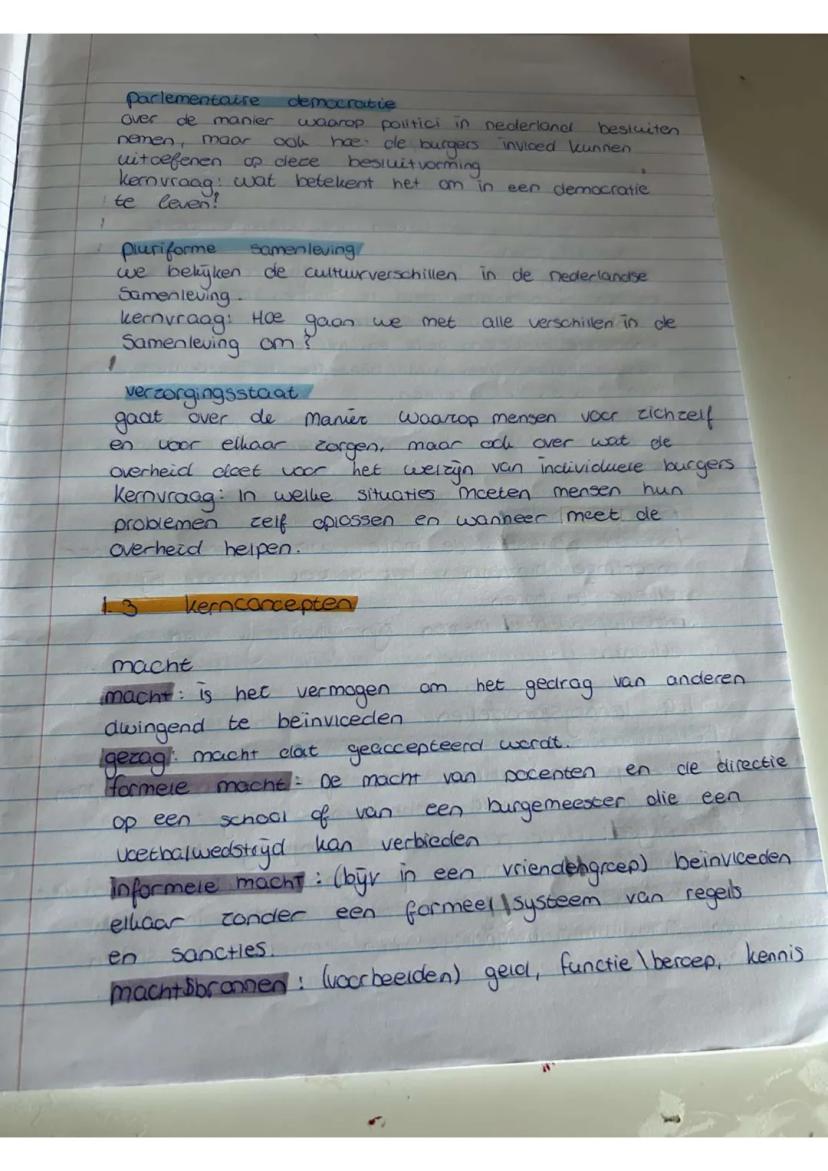 parlementaire democratie
over de manier waarop politici in nederland besluiten
nemen, maar ook hoe de burgers invloed kunnen
uitoefenen op deze besluitvorming
kernvraag: wat betekent het om in een democratie
te leven?
pluriforme samenleving
we bekijken de cultuurverschillen in de nederlandse
samenleving.
kernvraag: Hoe gaan we met alle verschillen in de
samenleving om?
verzorgingsstaat
gaat over de manier waarop mensen voor zichzelf
en voor elkaar zorgen, maar ook over wat de
overheid doet voor het welzijn van individuele burgers
kernvraag: in welke situaties moeten mensen hun
problemen zelf oplossen en wanneer moet de
overheid helpen.
1.3 kernconcepten
macht
macht: is het vermogen om het gedrag van anderen
dwingend te beïnvloeden
gezag: macht dat geaccepteerd wordt.
formele macht: De macht van docenten en de directie
op een school of van een burgemeester die een
voetbalwedstrijd kan verbieden
informele macht: (bijv in een vriendengroep) beïnvloeden
elkaar zonder een formeel systeem van regels
en sancties.
machtsbronnen: (voorbeelden) geld, functie\beroep, kennis